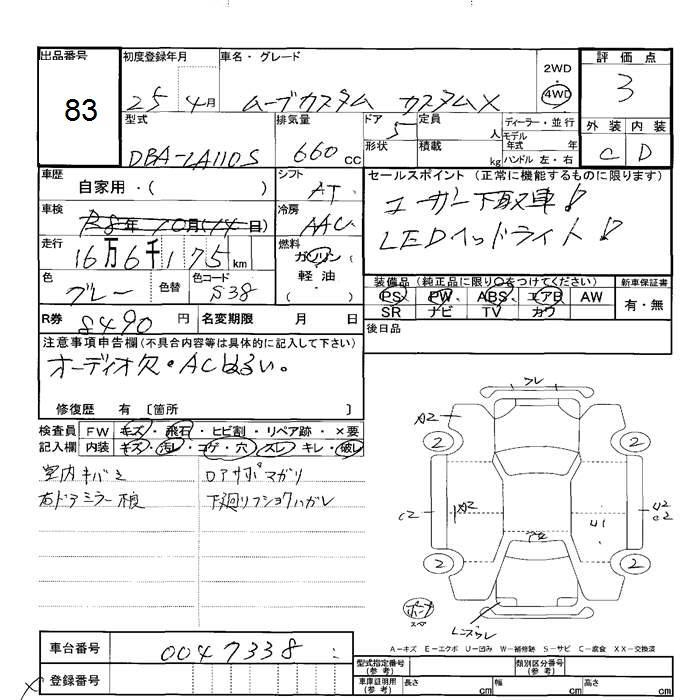 出品番号 初度登録年月 車名・グレード 評価点
83
25年 4月 ムーブカスタム カスタムX 2WD・4WD 3
型式 排気量 ドア 定員 人 ディーラー・並行 外装 内装
DBA-LA110S 660cc 5 形状 積載 kg モデル年式 年 ハンドル 左・右 C D
車歴 自家用・( ) シフト AT セールスポイント (正常に機能するものに限ります)
車検 R8年10月(14日) 冷房 AAC ユーザー下取車!
走行 16万6千175km 燃料 ガソリン 軽油 ( ) LEDヘッドライト!
色 ブルー 色替 色コード S38 装備品 (純正品に限り○をつけてください) 新車保証書
PS PW ABS エアB AW 有・無
SR ナビ TV カワ
R券 8490円 名変期限 月 日 後日品
注意事項申告欄(不具合内容等は具体的に記入して下さい)
オーディオ欠・ACわるい。
修復歴 有 〔箇所 〕
検査員 FW キズ・飛石・ヒビ割・リペア跡・×要
記入欄 内装 キズ・汚レ・コゲ・穴・スレ・キレ・破レ
室内キバミ ロアサポマガリ
右ドアミラー 下廻リフショクハガレ
フレ
A2
2 2
C2 A2 U1 U2 C2
2 2
レンズワレ
A-キズ E-エクボ U-凹み W-補修跡 S-サビ C-腐食 XX-交換済
車台番号 0047338
登録番号
型式指定番号(参考) 類別区分番号(参考)
車庫証明用(参考) 長さ cm 幅 cm 高さ cm